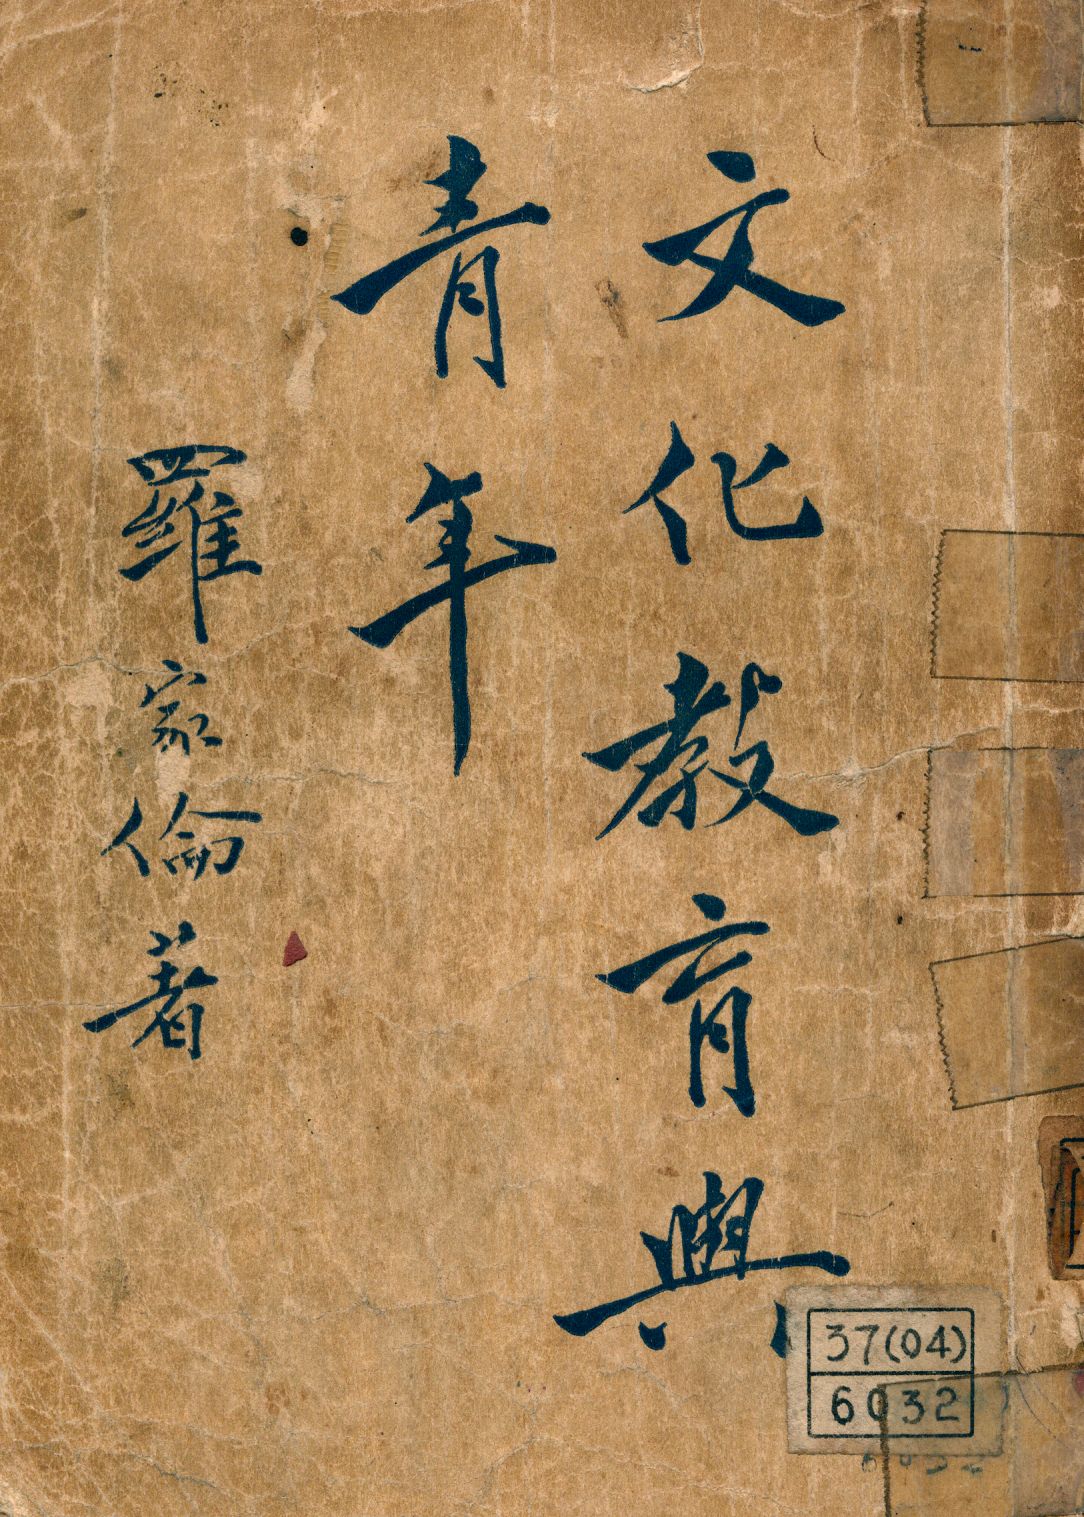 文化教育與
青年
羅家倫著
37(04)
6032